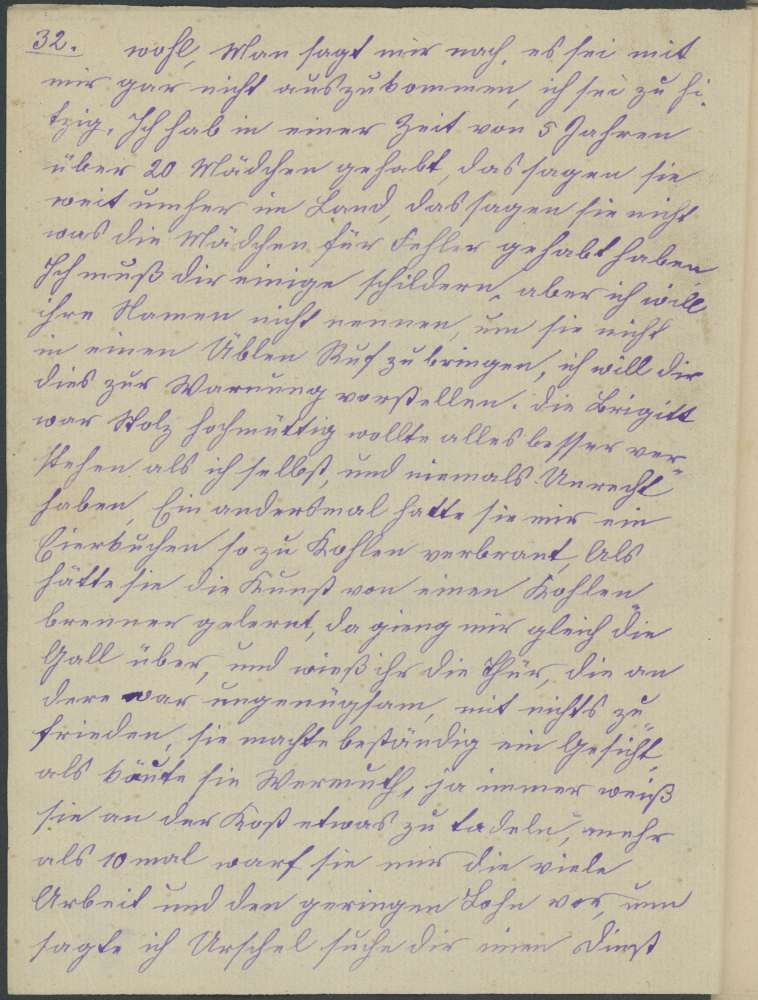 32. wohl, Man sagt mir nach, es sei mit
mir gar nicht auszukommen, ich sei zu hi„
tzig. Ich hab in einer Zeit von 5 Jahren
über 20 Mädchen gehabt, das sagen sie
weit umher im Land, das sagen sie nicht
was die Mädchen für Fehler gehabt haben
Ich muß dir einige schildern, aber ich will
ihre Namen nicht nennen, um sie nicht
in einen Üblen Ruf zu bringen, ich will dir
dies zur Warnung vorstellen. die Brigitt
war Stolz hochmüttig wollte alles besser ver„
stehen als ich selbst, und niemals Unrecht
haben, Ein andersmal hatte sie mir ein
Eierkuchen so zu Kohlen verbrant, Als
hätte sie die Kunst von einen Kohlen
brenner gelernt, da gieng mir gleich die
Gall über, und wieß ihr die Thür, die an
dere war ungenügsam, mit nichts zu„
frieden, sie machte beständig ein Gesicht,
als käute sie Wermuth, ja immer weiß
sie an der Kost etwas zu tadeln, mehr
als 10 mal warf sie mir die viele
Arbeit und den geringen Lohn vor, nun
sagte ich Urschel suche dir einen Dienst